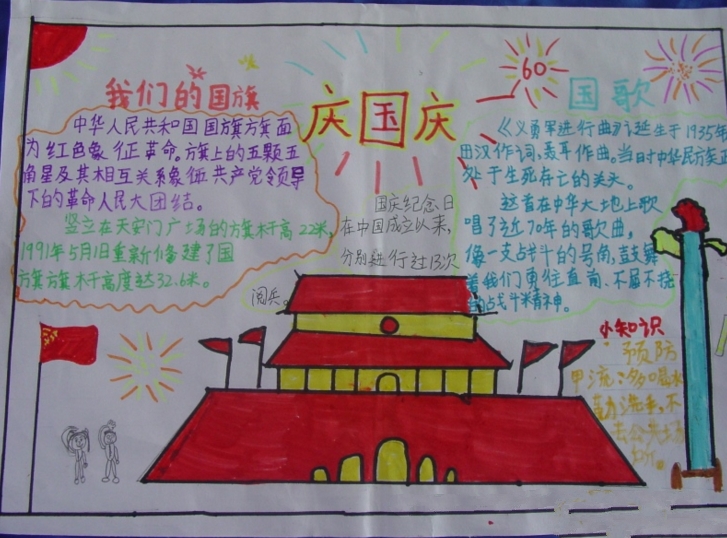 我们的国旗
中华人民共和国国旗旗面
为红色象征革命。旗上的五颗五
角星及其相互关系象征共产党领导
下的革命人民大团结。
竖立在天安门广场的方旗杆高22米,
1991年5月1日重新修建了国
方旗方旗杆高度达32.6米。
庆国庆
60
国庆纪念日
在中国成立以来,
分别进行过13次
阅兵。
国歌
《义勇军进行曲》诞生于1935年
田汉作词,聂耳作曲。当日寸中华民族正
处于生死存亡的关头。
这首在中华大地上歌
唱了近70年的歌曲,
像一支战斗的号角,鼓舞
着我们勇往直前、不屈不挠
的战斗精神。
小知识
预防
甲流:多喝水
勤洗手,不
去公共场
所。